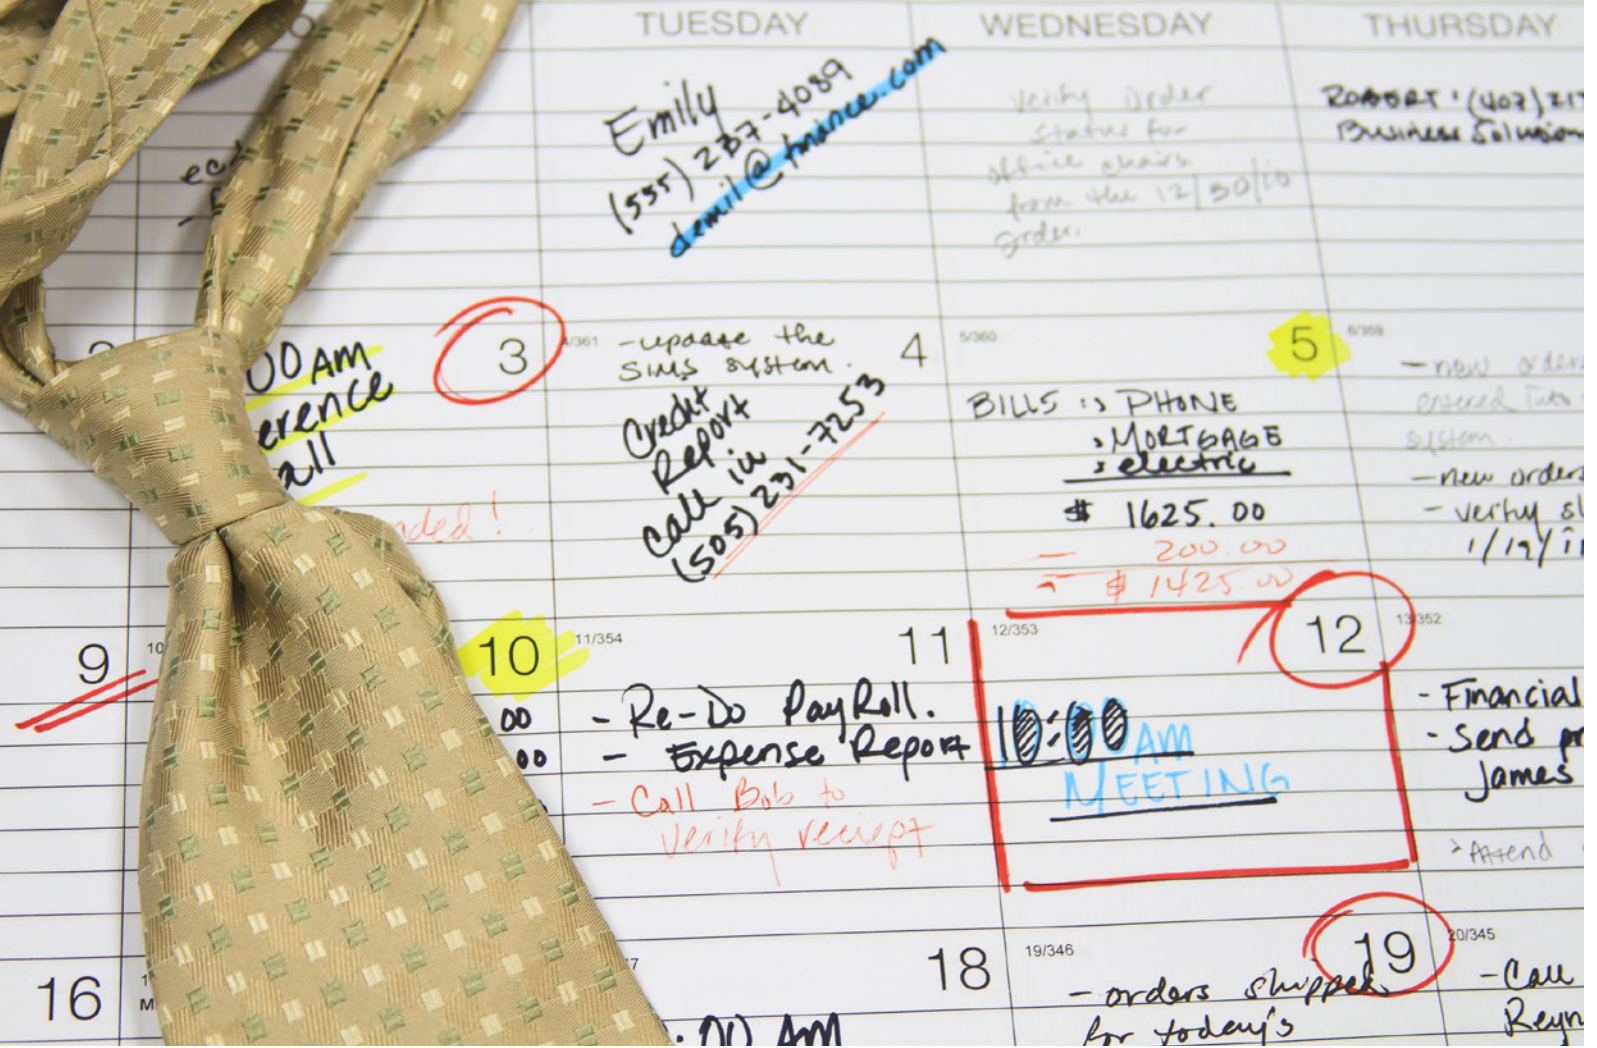 TUESDAY
WEDNESDAY
THURSDAY
Emily
(555) 237-4089
demil@finance.com
Verify Order
Status for
office chairs
from the 12/30/10
order.
ROBERT (407) 217
Business Solusion
3
00 AM
erence
all
nded!
4/361
4
-update the
SIMS system.
Credit
Report
Call in
(505) 231-7253
5/360
5
BILLS :> PHONE
> MORTGAGE
> electric
$ 1625.00
- 200.00
= $ 1425.00
6/359
- new orders
entered into
system.
- new orders
- verify
1/19/11
9
10
10
00
00
11/354
11
- Re-Do PayRoll.
- Expense Report
- Call Bob to
verify reciept
12/353
12
10:00 AM
MEETING
13/352
- Financial
- Send pr
James
> Attend
16
M
7
18
:00 AM
19/346
19
- orders shipped
for today's
20/345
- Call
Reyn